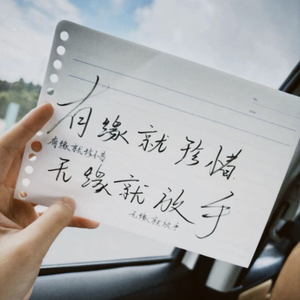 有缘就珍惜
有缘就珍惜
无缘就放手
无缘就放手